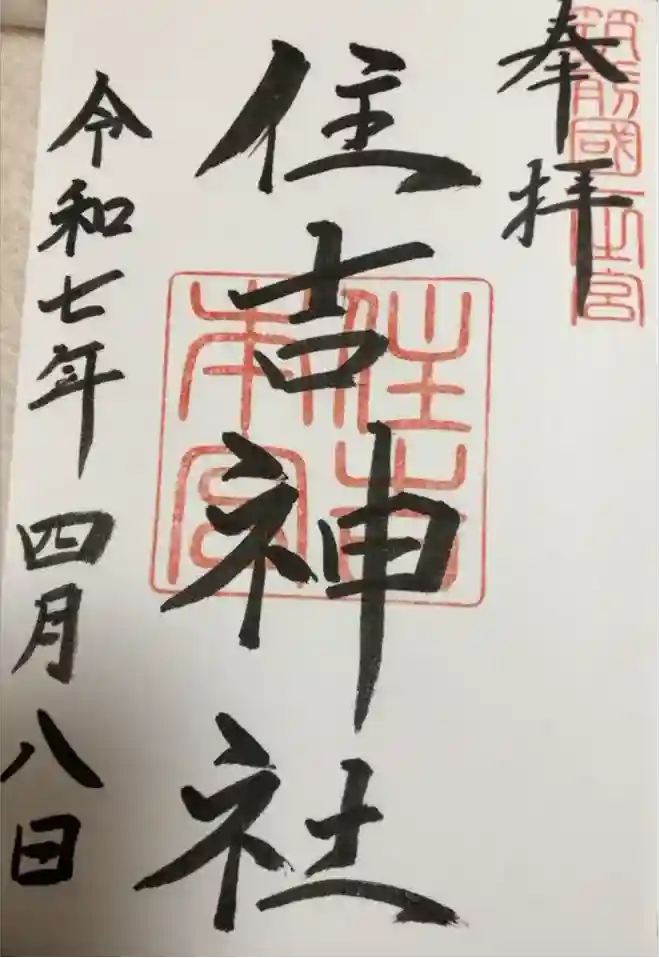 奉拝
筑前國一之宮
住吉神社
住吉
本宮
令和七年四月八日